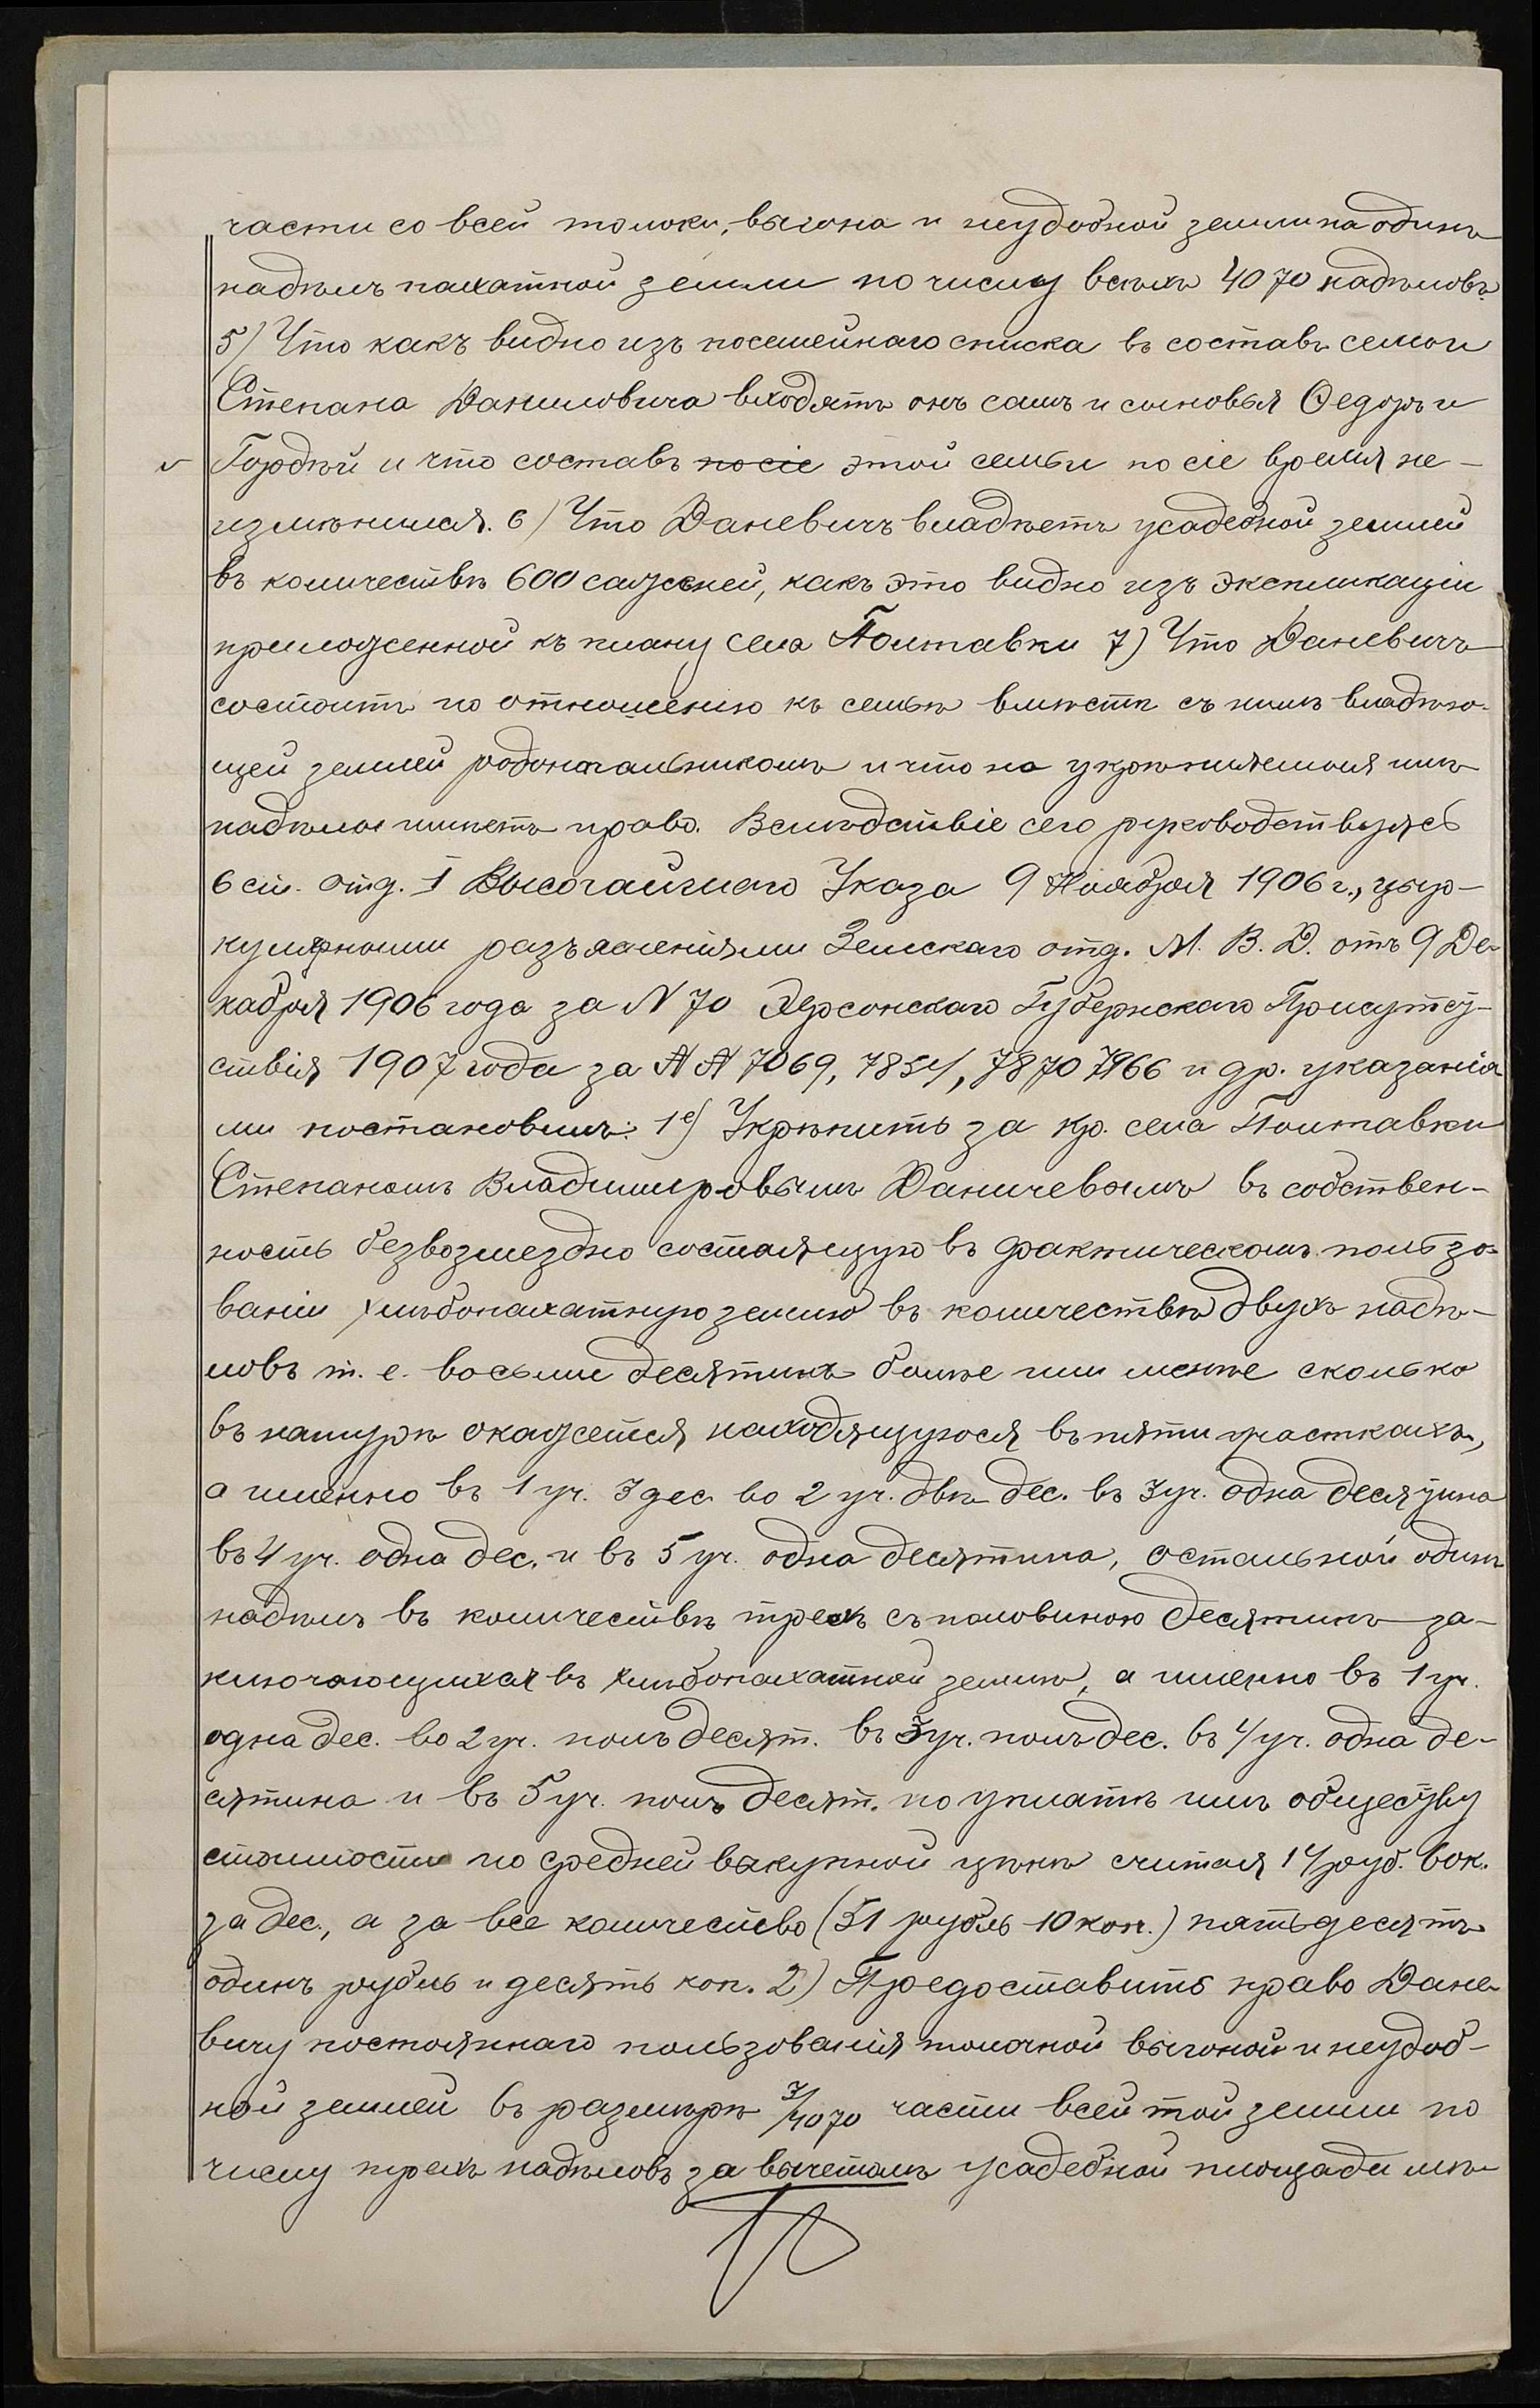 части со всей толоки, выгона и неудобной земли на одинъ
надѣлъ пахатной земли по числу всѣхъ 4070 надѣловъ
5) Что какъ видно изъ посемейнаго списка въ составъ семьи
Степана Даниловича входятъ онъ самъ и сыновья Ѳедоръ и
Гордѣй и что составъ по сіе этой семьи по сіе время не-
измѣнился. 6) Что Даневичъ владѣетъ усадебной землей
въ количествѣ 600 саженей, какъ это видно изъ экспликаціи
приложенной къ плану села Полтавки 7) Что Даневичъ
состоитъ по отношенію къ семьѣ вмѣстѣ съ нимъ владѣю-
щей землей родоначальникомъ и что на укрѣпляемыя имъ
надѣлы имѣетъ право. Вслѣдствіе сего руководствуясь
6 ст. отд. I Высочайшаго Указа 9 Ноября 1906 г., цир-
кулярными разъясненіями Земскаго отд. М. В. Д. отъ 9 Де-
кабря 1906 года за N 70 Херсонскаго Губернскаго Присутст-
ствія 1907 года за N N 7069, 7854, 7870 7966 и др. указанія
ми постановилъ: 1е) Укрѣпить за кр. села Полтавки
Степаномъ Владимировымъ Даничевымъ въ собствен-
ность безвозмездно состоящую въ фактическомъ пользо-
ваніи хлѣбопахатную землю въ количествѣ двухъ надѣ-
ловъ т. е. восьми десятинъ болѣе или менѣе сколько
въ натурѣ окажется находящуюся въ пяти участкахъ,
а именно въ 1 уч. 3 дес. во 2 уч. двѣ дес. въ 3 уч. одна десятина
въ 4 уч. одна дес. и въ 5 уч. одна десятина, остальной одинъ
надѣлъ въ количествѣ трехъ съ половиною десятинъ за-
ключающихся въ хлѣбопахатной землѣ, а именно въ 1 уч.
одна дес. во 2 уч. полъ десят. въ 3 уч. полъ дес. въ 4 уч. одна де-
сятина и въ 5 уч. полъ десят. по уплатѣ имъ обществу
стоимости по средней выкупной цѣнѣ считая 14 руб. 60 к.
за дес., а за все количество (51 рубль 10 коп.) пятьдесятъ
одинъ рубль и десять коп. 2) Предоставить право Дане-
вичу постояннаго пользованія толочной выгоной и неудоб-
ной землей въ размѣрѣ 3/4070 части всей той земли по
числу трехъ надѣловъ за вычетомъ усадебной площади им-